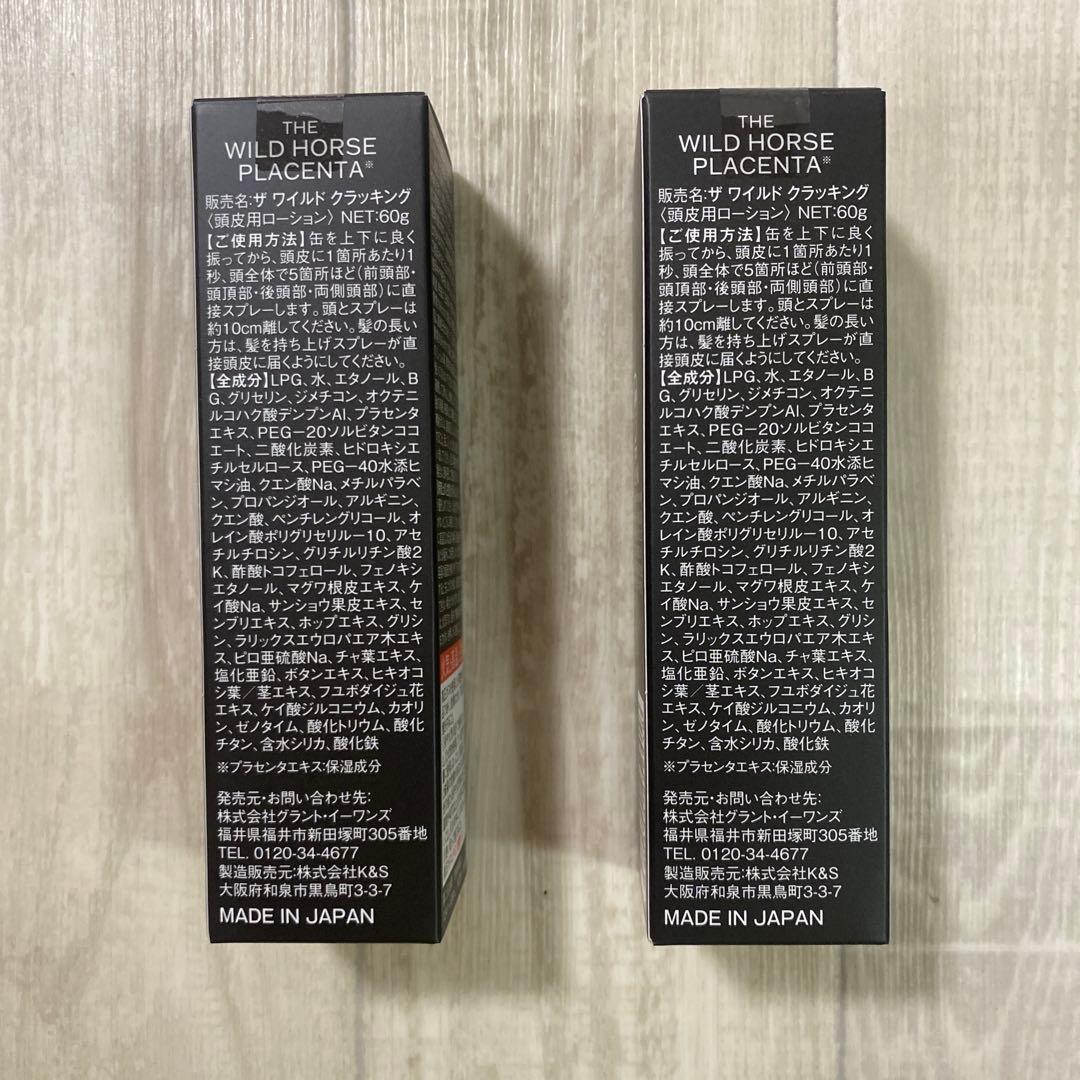 THE
WILD HORSE
PLACENTA※
販売名:ザ ワイルド クラッキング
〈頭皮用ローション〉 NET:60g
【ご使用方法】缶を上下に良く
振ってから、頭皮に1箇所あたり1
秒、頭全体で5箇所ほど(前頭部・
頭頂部・後頭部・両側頭部)に直
接スプレーします。頭とスプレーは
約10cm離してください。髪の長い
方は、髪を持ち上げスプレーが直
接頭皮に届くようにしてください。
【全成分】LPG、水、エタノール、B
G、グリセリン、ジメチコン、オクテニ
ルコハク酸デンプンAl、プラセンタ
エキス、PEG-20ソルビタンココ
エート、二酸化炭素、ヒドロキシエ
チルセルロース、PEG-40水添ヒ
マシ油、クエン酸Na、メチルパラベ
ン、プロパンジオール、アルギニン、
クエン酸、ペンチレングリコール、オ
レイン酸ポリグリセリル-10、アセ
チルチロシン、グリチルリチン酸2
K、酢酸トコフェロール、フェノキシ
エタノール、マグワ根皮エキス、ケ
イ酸Na、サンショウ果皮エキス、セ
ンブリエキス、ホップエキス、グリシ
ン、ラリックスエウロパエア木エキ
ス、ピロ亜硫酸Na、チャ葉エキス、
塩化亜鉛、ボタンエキス、ヒキオコ
シ葉/茎エキス、フユボダイジュ花
エキス、ケイ酸ジルコニウム、カオリ
ン、ゼノタイム、酸化トリウム、酸化
チタン、含水シリカ、酸化鉄
※プラセンタエキス:保湿成分
発売元・お問い合わせ先:
株式会社グラント・イーワンズ
福井県福井市新田塚町305番地
TEL. 0120-34-4677
製造販売元:株式会社K&S
大阪府和泉市黒鳥町3-3-7
MADE IN JAPAN
THE
WILD HORSE
PLACENTA※
販売名:ザ ワイルド クラッキング
〈頭皮用ローション〉 NET:60g
【ご使用方法】缶を上下に良く
振ってから、頭皮に1箇所あたり1
秒、頭全体で5箇所ほど(前頭部・
頭頂部・後頭部・両側頭部)に直
接スプレーします。頭とスプレーは
約10cm離してください。髪の長い
方は、髪を持ち上げスプレーが直
接頭皮に届くようにしてください。
【全成分】LPG、水、エタノール、B
G、グリセリン、ジメチコン、オクテニ
ルコハク酸デンプンAl、プラセンタ
エキス、PEG-20ソルビタンココ
エート、二酸化炭素、ヒドロキシエ
チルセルロース、PEG-40水添ヒ
マシ油、クエン酸Na、メチルパラベ
ン、プロパンジオール、アルギニン、
クエン酸、ペンチレングリコール、オ
レイン酸ポリグリセリル-10、アセ
チルチロシン、グリチルリチン酸2
K、酢酸トコフェロール、フェノキシ
エタノール、マグワ根皮エキス、ケ
イ酸Na、サンショウ果皮エキス、セ
ンブリエキス、ホップエキス、グリシ
ン、ラリックスエウロパエア木エキ
ス、ピロ亜硫酸Na、チャ葉エキス、
塩化亜鉛、ボタンエキス、ヒキオコ
シ葉/茎エキス、フユボダイジュ花
エキス、ケイ酸ジルコニウム、カオリ
ン、ゼノタイム、酸化トリウム、酸化
チタン、含水シリカ、酸化鉄
※プラセンタエキス:保湿成分
発売元・お問い合わせ先:
株式会社グラント・イーワンズ
福井県福井市新田塚町305番地
TEL. 0120-34-4677
製造販売元:株式会社K&S
大阪府和泉市黒鳥町3-3-7
MADE IN JAPAN